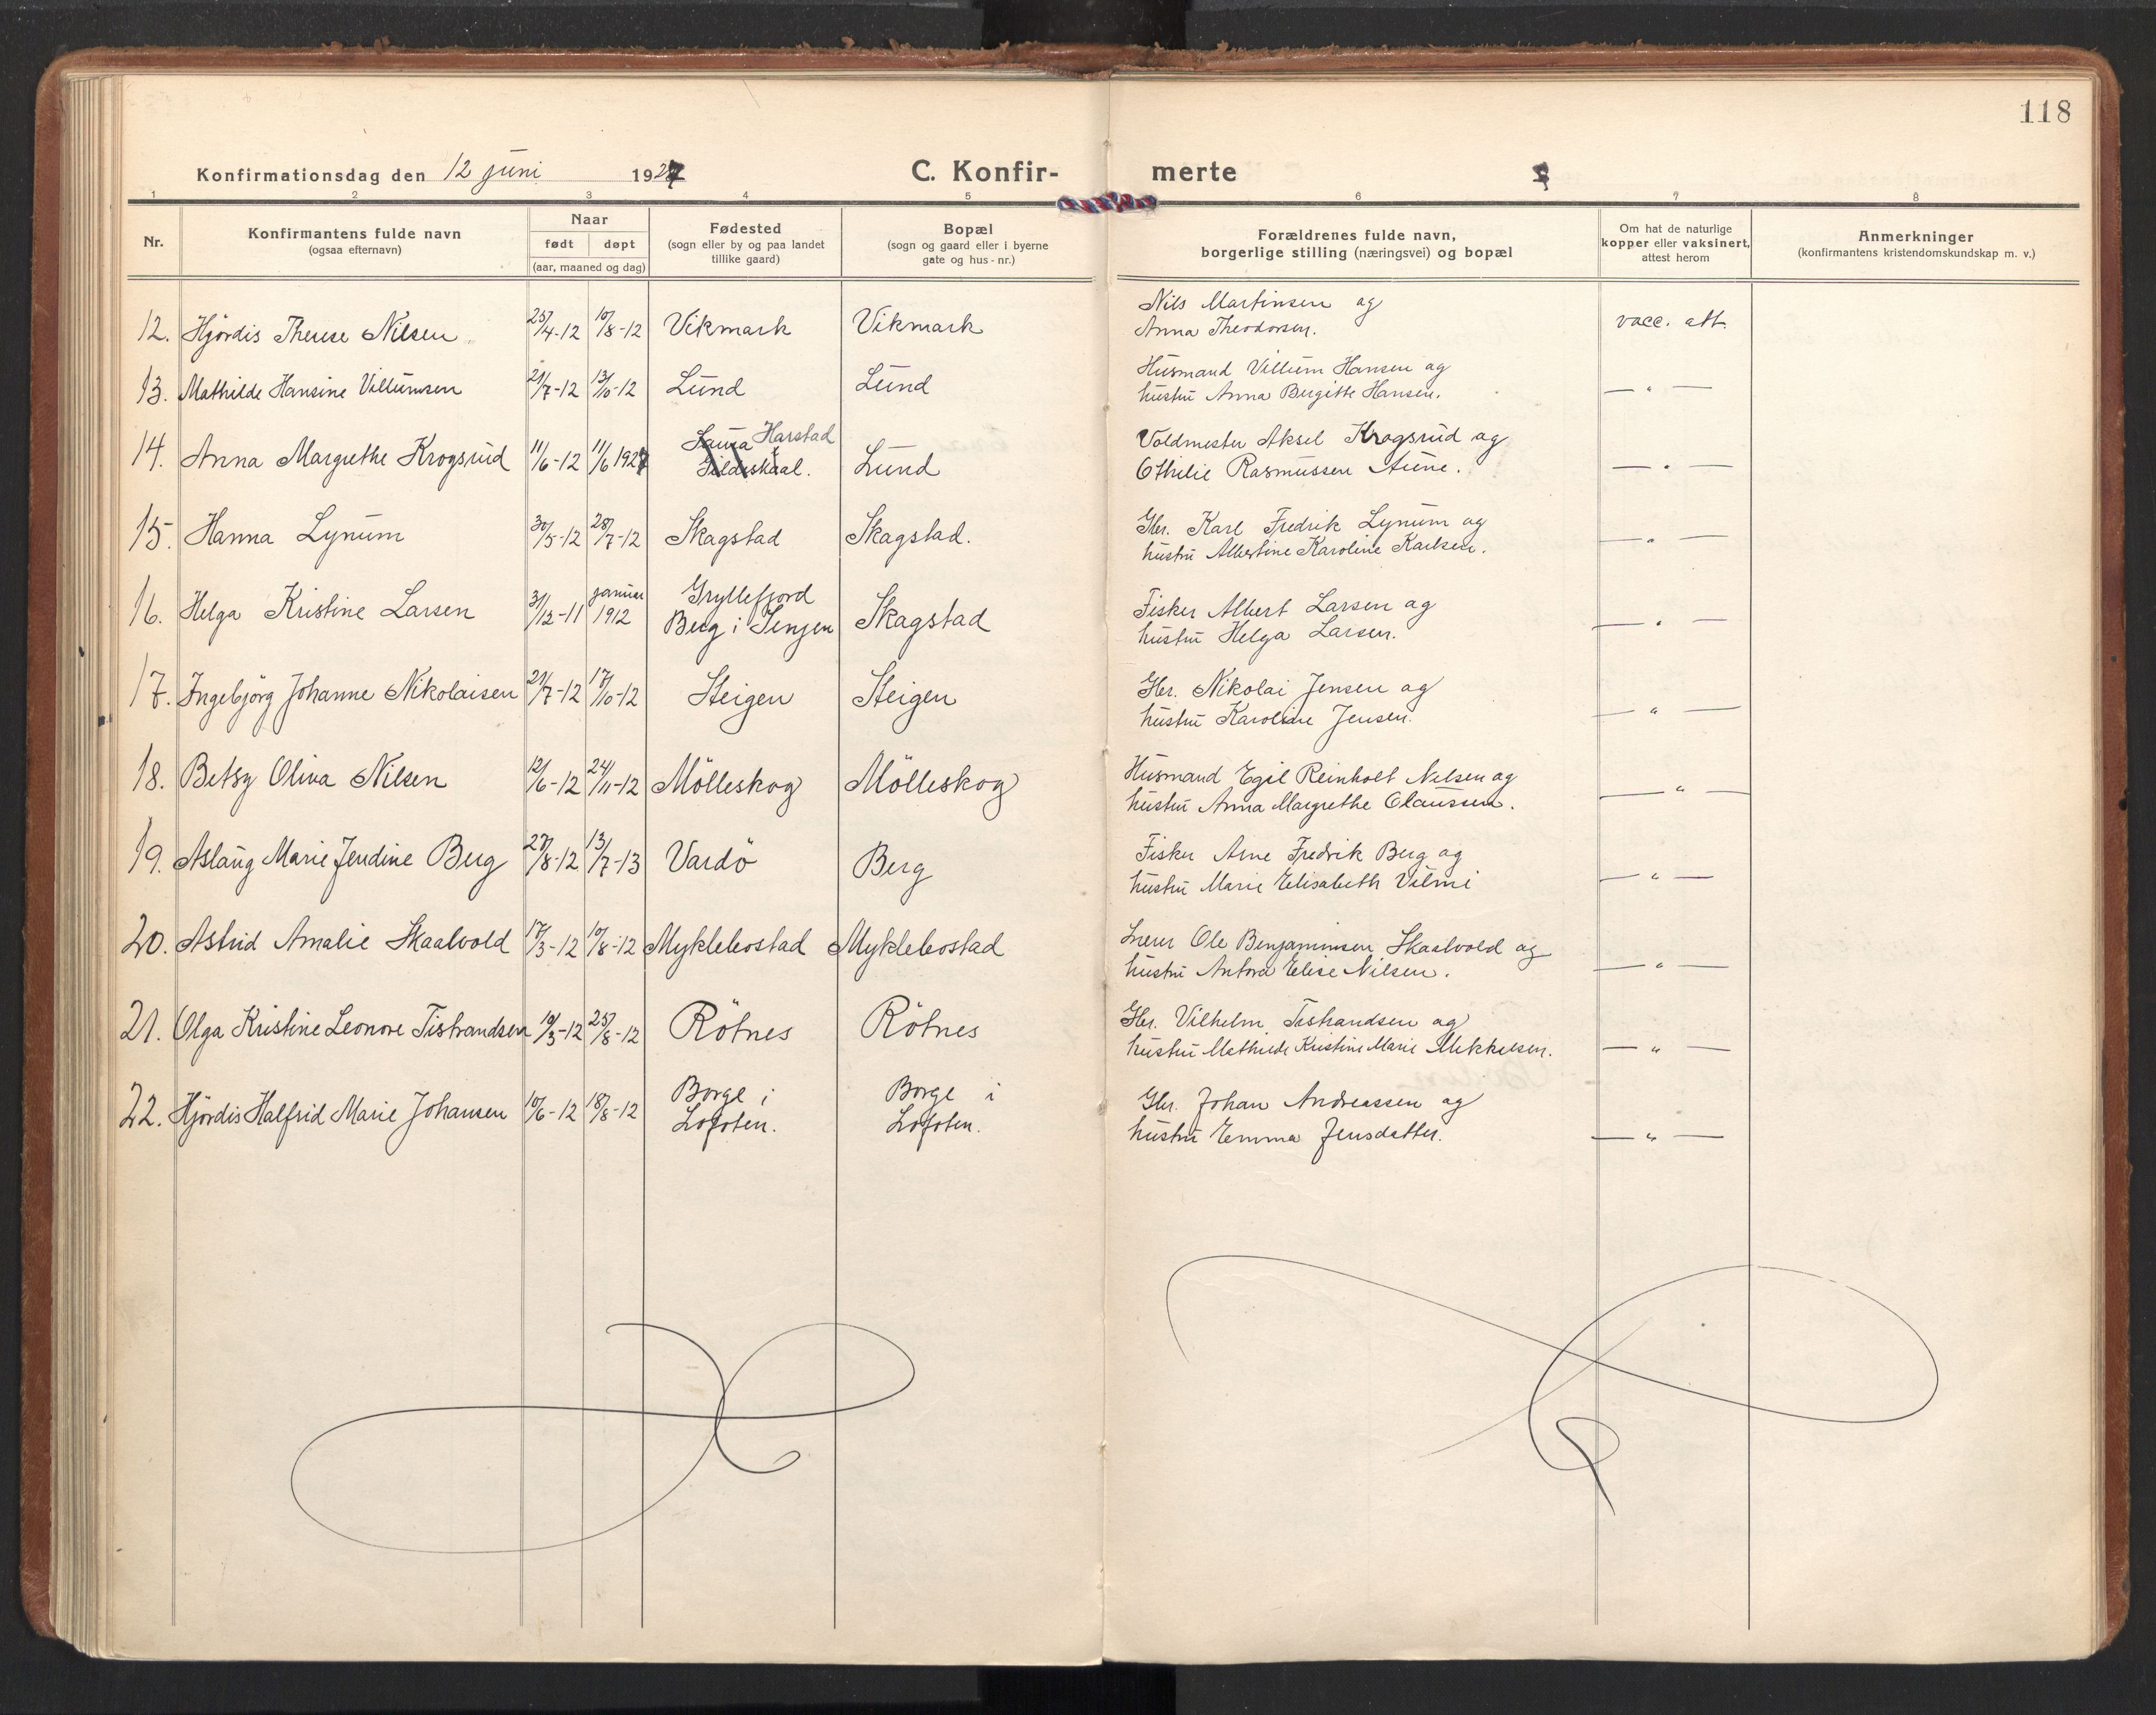 118
Konfirmationsdag den 12 juni 1927
C. Konfir- merte
1 2 3 4 5 6 7 8
Nr.
Konfirmantens fulde navn
(ogsaa efternavn)
Naar
født døpt
(aar, maaned og dag)
Fødested
(sogn eller by og paa landet
tillike gaard)
Bopæl
(sogn og gaard eller i byerne
gate og hus-nr.)
Forældrenes fulde navn,
borgerlige stilling (næringsvei) og bopæl
Om hat de naturlige
kopper eller vaksinert,
attest herom
Anmerkninger
(konfirmantens kristendomskundskap m. v.)
12. Hjördis Therese Nilsen 25/4-12 10/8-12 Vikmark Vikmark
Nils Martinsen og
Anna Theodorsen.
vacc. att.
13. Mathilde Hansine Villumsen 21/7-12 13/10-12 Lund Lund
Husmand Villum Hansen og
hustru Anna Bergitte Hansen.
— " —
14. Anna Margrethe Krogsrud 11/6-12 11/6 1927 Harstad
Gildeskaal. Lund
Voldmester Aksel Krogsrud og
Othilie Rasmussen Aune.
— " —
15. Hanna Lynum 30/5-12 28/7-12 Skagstad Skagstad.
Gbr. Karl Fredrik Lynum og
hustru Albertine Karoline Karlsen.
— " —
16. Helga Kristine Larsen 31/12-11 januar 1912 Gryllefjord
Berg i Senjen Skagstad
Fisker Albert Larsen og
hustru Helga Larsen.
— " —
17. Ingebjörg Johanne Nikolaisen 21/7-12 17/10-12 Steigen Steigen
Gbr. Nikolai Jensen og
hustru Karoline Jensen.
— " —
18. Betsy Oliva Nilsen 12/6-12 24/11-12 Mölleskog Mölleskog
Husmand Egil Reinholt Nilsen og
hustru Anna Margrethe Olaussen.
— " —
19. Aslaug Marie Jendine Berg 27/8-12 13/7-13 Vardö Berg
Fisker Arne Fredrik Berg og
hustru Marie Elisabeth Vilmi
— " —
20. Astrid Amalie Skaalvold 17/3-12 10/8-12 Myklebostad Myklebostad
Ole Benjaminsen Skaalvold og
hustru Antora Elise Nilsen.
— " —
21. Olga Kristine Leonore Tistrandsen 10/3-12 25/8-12 Rötnes Rötnes
Gbr. Vilhelm Tistrandsen og
hustru Mathilde Kristine Marie Mekkelsen.
— " —
22. Hjördis Halfrid Marie Johansen 10/6-12 18/8-12 Borge i
Lofoten. Borge i
Lofoten.
Gbr. Johan Andreassen og
hustru Emma Jensdatter.
— " —